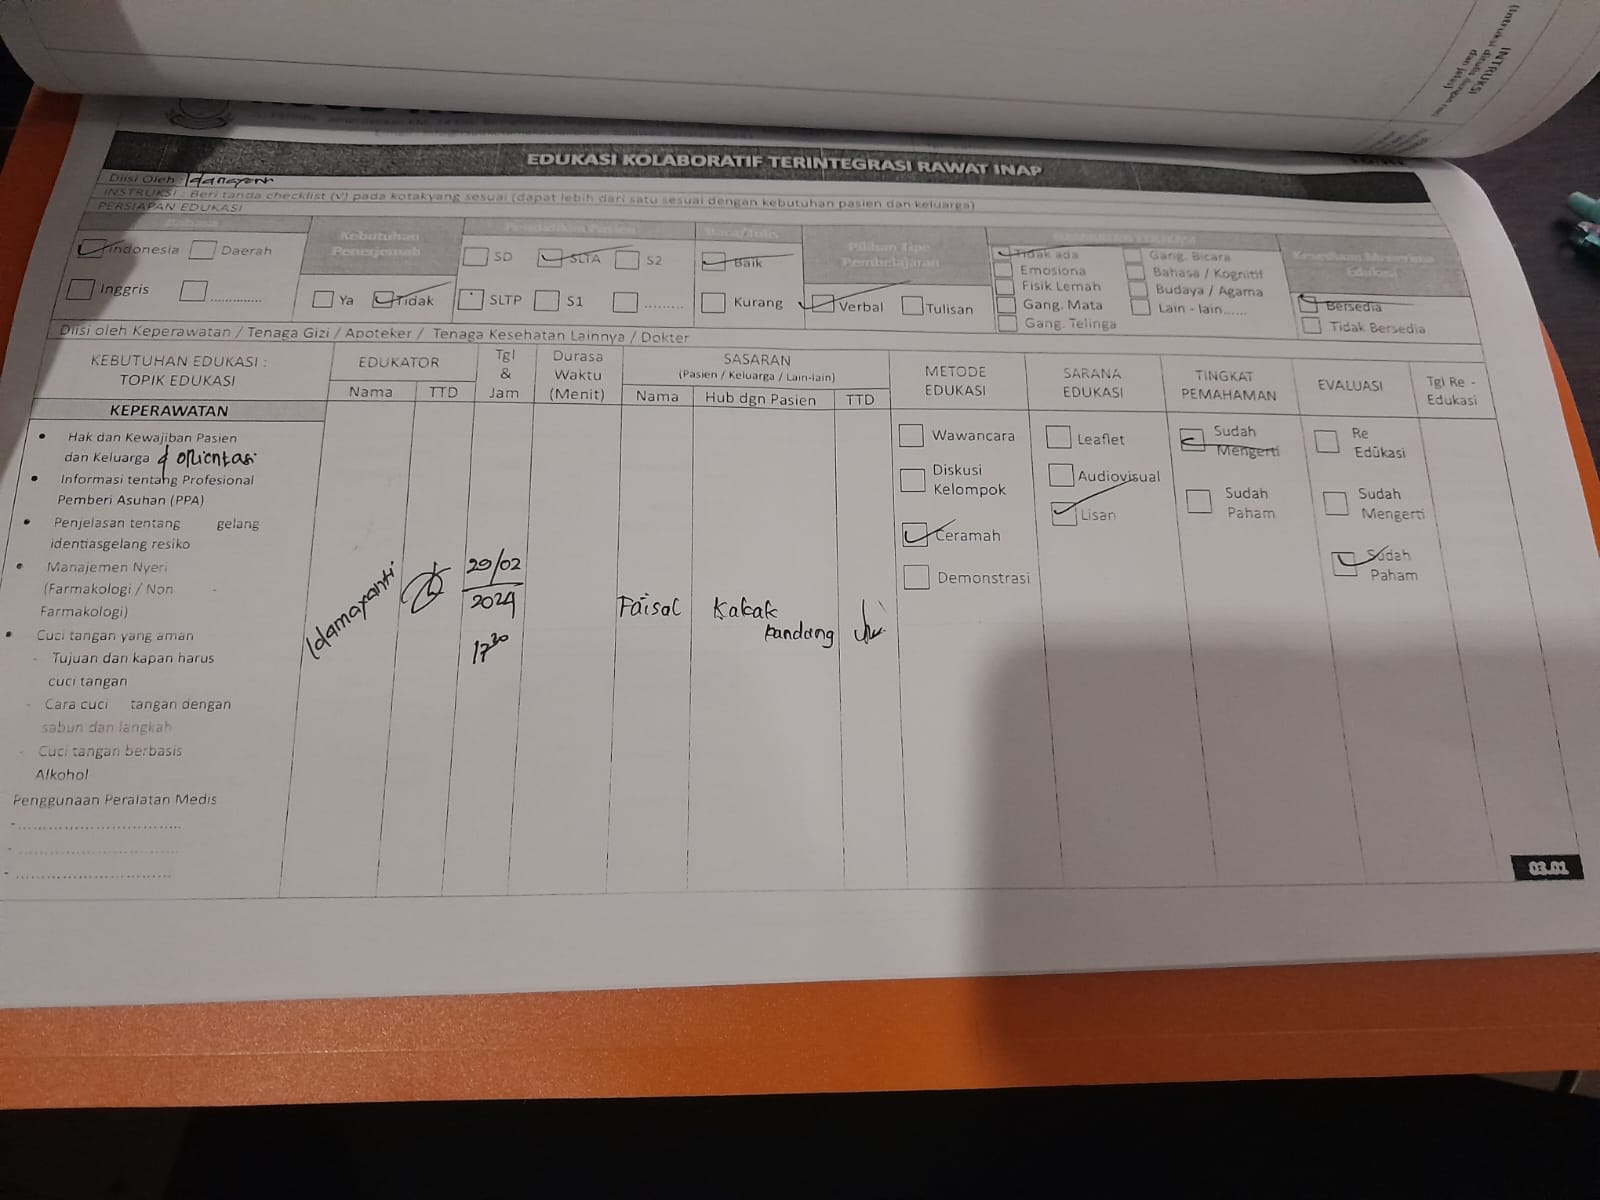 EDUKASI KOLABORATIF TERINTEGRASI RAWAT INAP
Diisi Oleh Idamayanti
INSTRUKSI : Beri tanda checklist (V) pada kotakyang sesuai (dapat lebih dari satu sesuai dengan kebutuhan pasien dan keluarga)
PERSIAPAN EDUKASI
Indonesia Daerah
Inggris ..............
Kebutuhan
Penerjemah
Ya Tidak
Pendidikan Pasien
SD SLTA S2
SLTP S1 .........
Baca/Tulis
Baik
Kurang
Pilihan Tipe
Pembelajaran
Verbal Tulisan
Tidak ada
Emosiona
Fisik Lemah
Gang. Mata
Gang. Telinga
Gang. Bicara
Bahasa / Kognitif
Budaya / Agama
Lain - lain......
Kesediaan Menerima
Edukasi
Bersedia
Tidak Bersedia
Diisi oleh Keperawatan / Tenaga Gizi / Apoteker / Tenaga Kesehatan Lainnya / Dokter
KEBUTUHAN EDUKASI :
TOPIK EDUKASI
EDUKATOR
Nama TTD
Tgl
&
Jam
Durasa
Waktu
(Menit)
SASARAN
(Pasien / Keluarga / Lain-lain)
Nama Hub dgn Pasien TTD
METODE
EDUKASI
SARANA
EDUKASI
TINGKAT
PEMAHAMAN
EVALUASI
Tgl Re -
Edukasi
KEPERAWATAN
• Hak dan Kewajiban Pasien
dan Keluarga & orientasi
• Informasi tentang Profesional
Pemberi Asuhan (PPA)
• Penjelasan tentang gelang
identiasgelang resiko
• Manajemen Nyeri
(Farmakologi / Non -
Farmakologi)
• Cuci tangan yang aman
- Tujuan dan kapan harus
cuci tangan
- Cara cuci tangan dengan
sabun dan langkah
- Cuci tangan berbasis
Alkohol
Penggunaan Peralatan Medis
-................................
-...............................
-..............................
Idamayanti
29/02
2024
17 30
Faisal
Kakak
kandang
Wawancara
Diskusi
Kelompok
Ceramah
Demonstrasi
Leaflet
Audiovisual
Lisan
Sudah
Mengerti
Sudah
Paham
Re
Edukasi
Sudah
Mengerti
Sudah
Paham
03.01
INTRUKSI